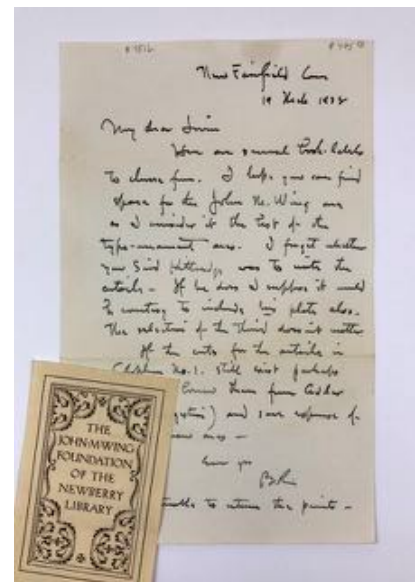 New Fairfield Conn
My dear Irvin
Here are several book-labels
to choose from. I hope you can find
space for the John M. Wing one
as I consider it the best of the
type-ornament ones. I forget whether
you said Kittredge was to write the
article – If he does I suppose it would
be courtesy to include his plate also.
The selection of the third does not matter
If the cuts for the article in
No. 1. still exist perhaps
them from
) and save expense of
ones –
to return the prints –
THE
JOHN·M·WING
FOUNDATION
OF THE
NEWBERRY
LIBRARY